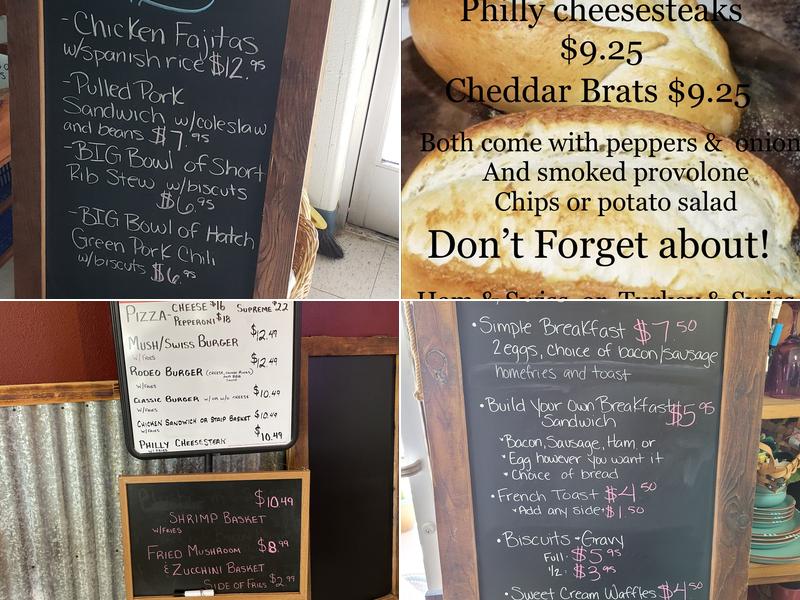 -Chicken Fajitas
w/spanish rice $12.95
-Pulled Pork
Sandwich w/coleslaw
and beans $7.95
-BIG Bowl of Short
Rib Stew w/biscuts
$6.95
-BIG Bowl of Hatch
Green Pork Chili
w/biscuts $6.95
Philly cheesesteaks
$9.25
Cheddar Brats $9.25
Both come with peppers & onion
And smoked provolone
Chips or potato salad
Don't Forget about!
Ham & Swiss or Turkey & Swiss
PIZZA- CHEESE $16 SUPREME $22
PEPPERONI $18
MUSH/SWISS BURGER $12.49
W/FRIES
RODEO BURGER $12.49
W/FRIES
CLASSIC BURGER W/ OR W/O CHEESE $10.49
W/FRIES
CHICKEN SANDWICH OR STRIP BASKET $10.49
W/FRIES
PHILLY CHEESESTEAK $10.49
W/FRIES
$10.49
SHRIMP BASKET
W/FRIES
FRIED MUSHROOM $8.99
& ZUCCHINI BASKET
SIDE OF FRIES $2.99
•Simple Breakfast $7.50
2eggs, choice of bacon/sausage
homefries and toast
•Build Your Own Breakfast $5.95
Sandwich
*Bacon, Sausage, Ham or
*Egg however you want it
*Choice of bread
•French Toast $4.50
*Add any side $1.50
•Biscuits & Gravy
Full: $5.95
1/2: $3.95
•Sweet Cream Waffles $4.50